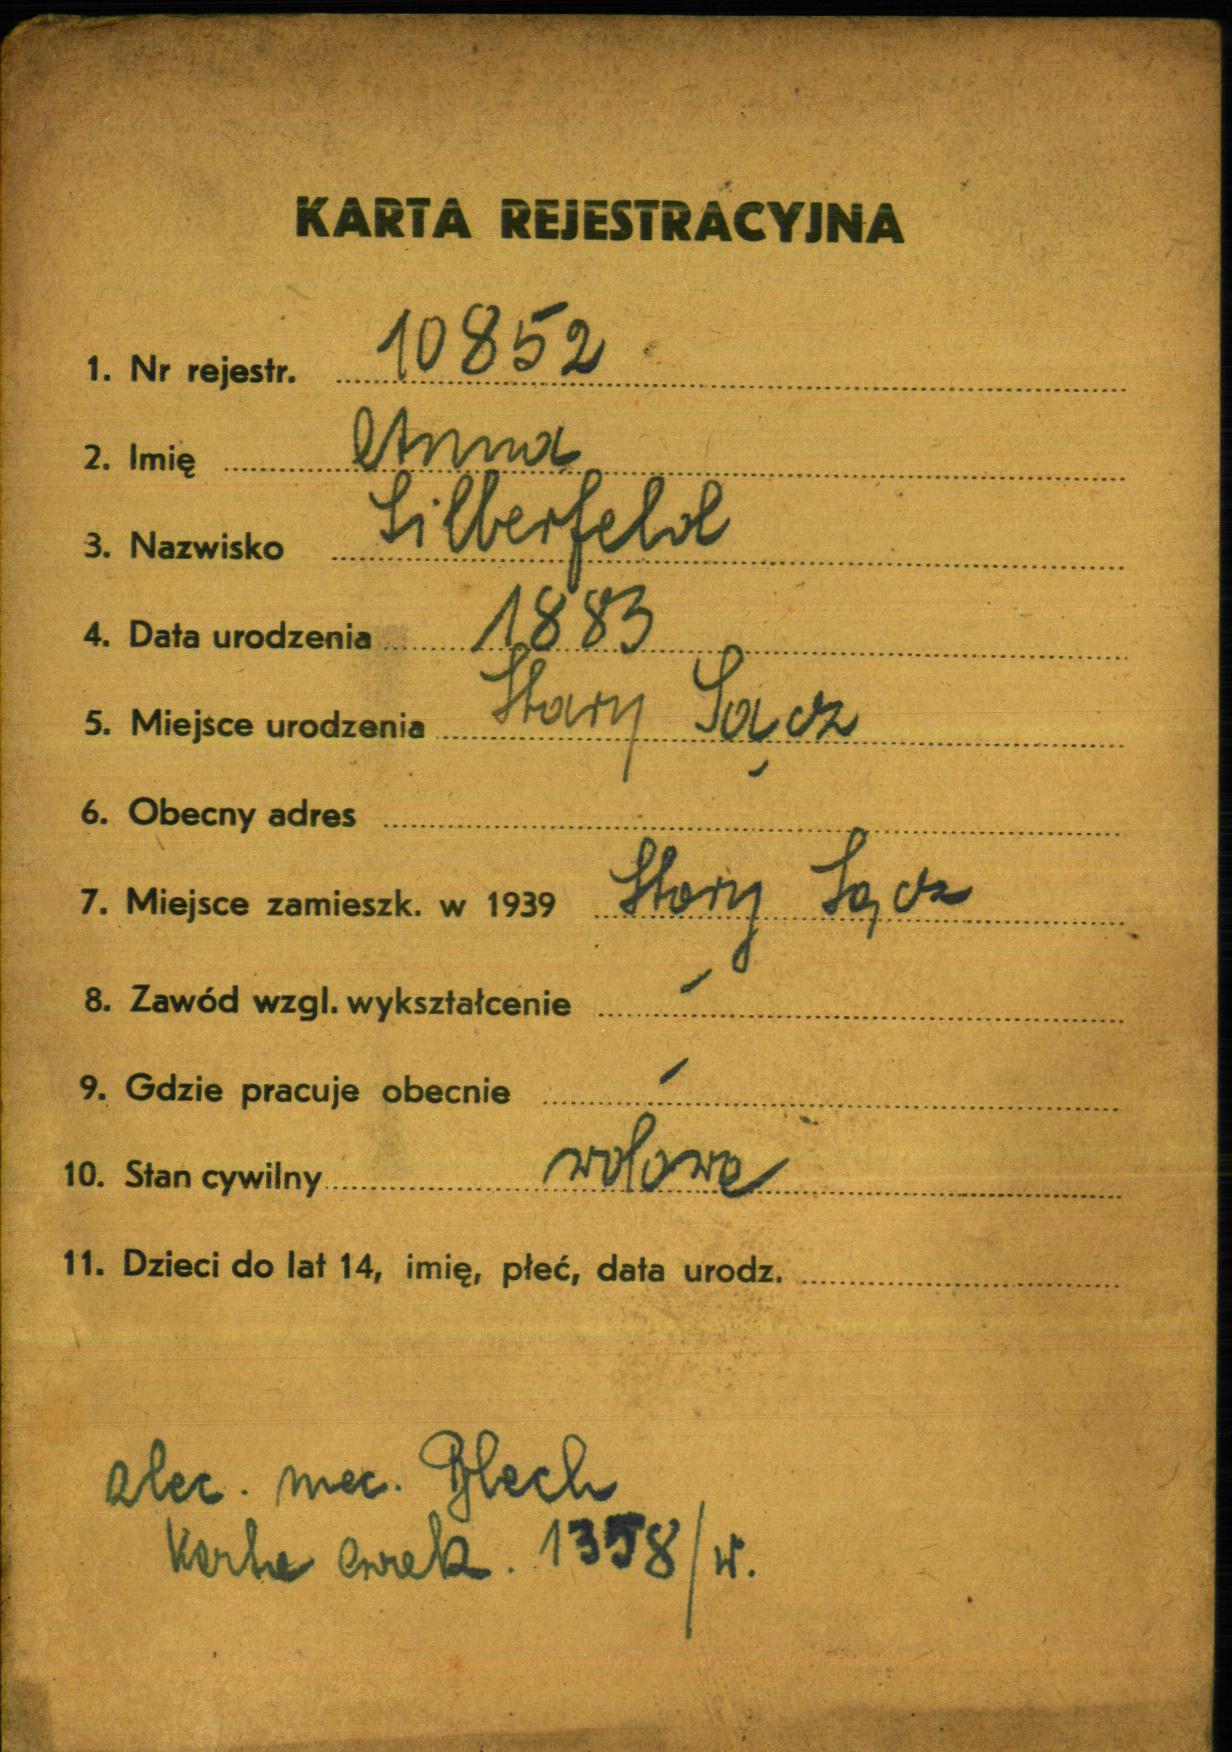 KARTA REJESTRACYJNA
1. Nr rejestr. 10852
2. Imię Anna
3. Nazwisko Silberfeld
4. Data urodzenia 1883
5. Miejsce urodzenia Stary Sącz
6. Obecny adres -
7. Miejsce zamieszk. w 1939 Stary Sącz
8. Zawód wzgl. wykształcenie -
9. Gdzie pracuje obecnie -
10. Stan cywilny wdowa
11. Dzieci do lat 14, imię, płeć, data urodz.
zlec. mec. Blech
Karta ewak. 1358/w.